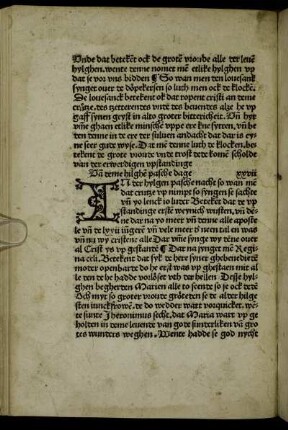 Unde dat beteket ock de grote vroude alle der leuen
hylghen. wente denne nomet me etlike hylghen vp
dat se vor vns bidden ¶ So wan men den louesank
synget ouer de döpekersen so luth men ock de klocke.
De louesanck betekent ok dat ropent cristi an deme
cruce.
gaff synen geyst in alto groter bittericheit. Vn hyr
vme ghaen etlike minsche vppe ere kne syttten, vn be
den denne in de ere der suluen andacht dat dar is ey
ne seer gute wyse. Dat me denne luth de klocken, be
tekent de grote vroude vnde trost de de komē scholde
van der erwerdigen vpstandinge
Uā deme hilghē pasche dage xxvii
IN der hylgen pasche nacht so wan me
dat crutze vp nimpt so syngen se sachte
vn yo lenck io luter Beteket dat de vp
standinge erste weynich wusten, vn de
ne dar na yo meer vn denne alle aposte
le vn de lxxii iūgerē vn vele meer d' men tal en was
vn nu wy cristene alle Dar vme synge wy denne ouer
al Crist ys vp gestande ¶ Dar na synget me Regi
na celi. Beteket dat syk de here syner ghebenedieden
moder openbarde do he erst was vp ghestaen mit al
le den de he hadde vorlöset vth der hellen Desse hyl
gen begherden Marien alle to seende so se ock dede
der alder hilge
sten iunckfrowē. de do wedder wart vorquicket. wē
te sunte Jheronimus secht, dat Maria wart vp ge
holden in deme leuende van gode sunderliken vā gro
tes wunders weghen. Wente hadde se god nycht